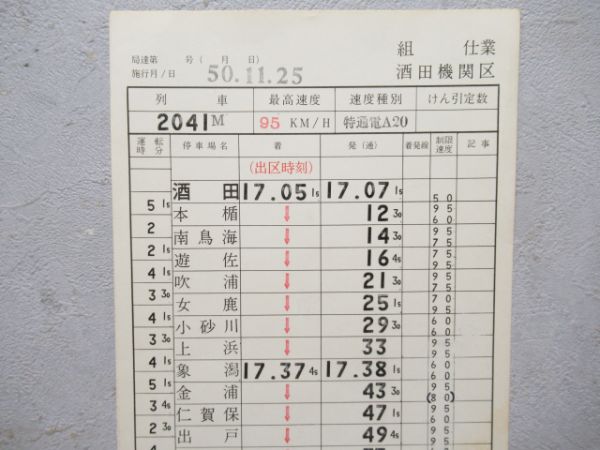 組 仕業
局達第 号( 月 日)
施行月/日 50.11.25 酒田機関区
列 車 最高速度 速度種別 けん引定数
2041M 95 KM/H 特通電A20
運転時分 停車場名 着 発(通) 着発線 制限速度 記事
(出区時刻)
酒田 17.05 1s 17.07 1s 50
5 1s
本楯 ↓ 12 30 95 60
2
南鳥海 ↓ 14 30 95 75
2 1s
遊佐 ↓ 16 4s 95 75
4 1s
吹浦 ↓ 21 30 95 75
3 30
女鹿 ↓ 25 1s 70 95
4 1s
小砂川 ↓ 29 30 60 60
3 30
上浜 ↓ 33 95 75
4 1s
象潟 17.37 4s 17.38 1s 60 60
5 1s
金浦 ↓ 43 30 95 (80)
3 4s
仁賀保 ↓ 47 1s 95 60
2 30
出戸 ↓ 49 4s 95
4